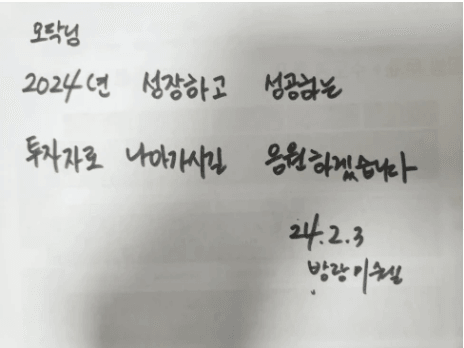 오닥님
2024년 성장하고 성공하는
투자자로 나아가시길 응원하겠습니다
24.2.3